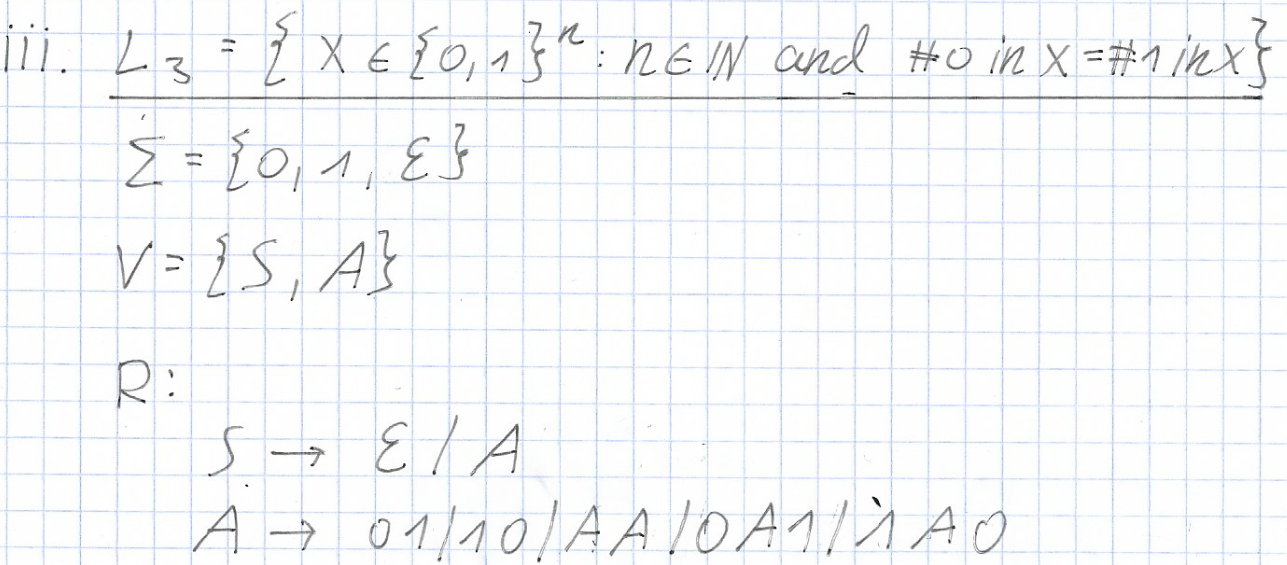 iii. L₃ = { X ∈ {0,1}ⁿ : n ∈ ℕ and #0 in X = #1 in X}
Σ = {0, 1, ε}
V = {S, A}
R:
S → ε / A
A → 01/10/AA/0A1/1A0